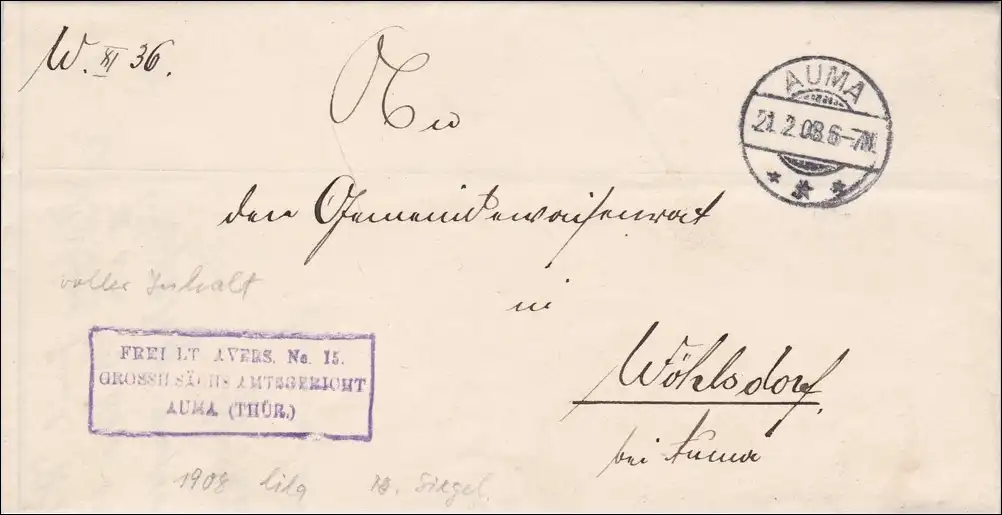 W. XI 36.
An
AUMA
21.2.08.6-7N.
den Gemeindewaisenrat
voller Inhalt
in
FREI LT. AVERS. No. 15.
GROSSH. SÄCHS. AMTSGERICHT
AUMA (THÜR.)
Wöhlsdorf.
bei Auma
1908 lila rs. Siegel.